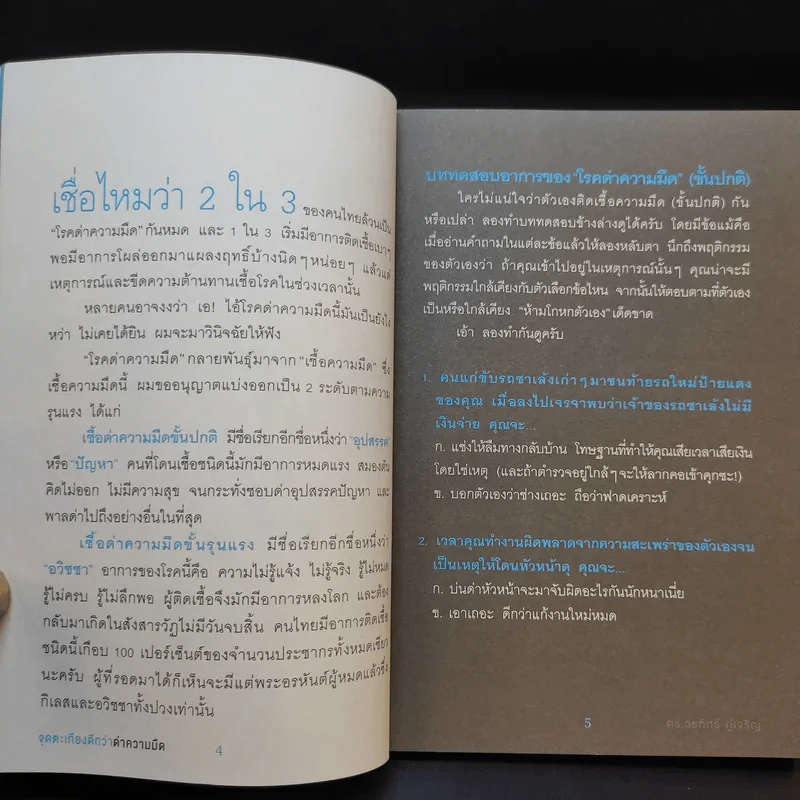 เชื่อไหมว่า 2 ใน 3 ของคนไทยล้วนเป็น
“โรคด่าความมืด” กันหมด และ 1 ใน 3 เริ่มมีอาการติดเชื้อเบาๆ
พอมีอาการโผล่ออกมาแผลงฤทธิ์บ้างนิดๆ หน่อยๆ แล้วแต่
เหตุการณ์และขีดความต้านทานเชื้อโรคในช่วงเวลานั้น
หลายคนอาจงงว่า เอ! ไอ้โรคด่าความมืดนี้มันเป็นยังไง
หว่า ไม่เคยได้ยิน ผมจะมาวินิจฉัยให้ฟัง
“โรคด่าความมืด” กลายพันธุ์มาจาก “เชื้อความมืด” ซึ่ง
เชื้อความมืดนี้ ผมขออนุญาตแบ่งออกเป็น 2 ระดับตามความ
รุนแรง ได้แก่
เชื้อด่าความมืดขั้นปกติ มีชื่อเรียกอีกชื่อหนึ่งว่า “อุปสรรค”
หรือ “ปัญหา” คนที่โดนเชื้อชนิดนี้มักมีอาการหมดแรง สมองตัน
คิดไม่ออก ไม่มีความสุข จนกระทั่งชอบด่าอุปสรรคปัญหา และ
พาลด่าไปถึงอย่างอื่นในที่สุด
เชื้อด่าความมืดขั้นรุนแรง มีชื่อเรียกอีกชื่อหนึ่งว่า
“อวิชชา” อาการของโรคนี้คือ ความไม่รู้แจ้ง ไม่รู้จริง รู้ไม่หมด
รู้ไม่ครบ รู้ไม่ลึกพอ ผู้ติดเชื้อจึงมักมีอาการหลงโลก และต้อง
กลับมาเกิดในสังสารวัฏไม่มีวันจบสิ้น คนไทยมีอาการติดเชื้อ
ชนิดนี้เกือบ 100 เปอร์เซ็นต์ของจำนวนประชากรทั้งหมดเชียว
นะครับ ผู้ที่รอดมาได้ก็เห็นจะมีแต่พระอรหันต์ผู้หมดแล้วซึ่ง
กิเลสและอวิชชาทั้งปวงเท่านั้น
จุดตะเกียงดีกว่าด่าความมืด 4
บททดสอบอาการของ “โรคด่าความมืด” (ขั้นปกติ)
ใครไม่แน่ใจว่าตัวเองติดเชื้อความมืด (ขั้นปกติ) กัน
หรือเปล่า ลองทำบททดสอบข้างล่างดูได้ครับ โดยมีข้อแม้คือ
เมื่ออ่านคำถามในแต่ละข้อแล้วให้ลองหลับตา นึกถึงพฤติกรรม
ของตัวเองว่า ถ้าคุณเข้าไปอยู่ในเหตุการณ์นั้นๆ คุณน่าจะมี
พฤติกรรมใกล้เคียงกับตัวเลือกข้อไหน จากนั้นให้ตอบตามที่ตัวเอง
เป็นหรือใกล้เคียง “ห้ามโกหกตัวเอง” เด็ดขาด
เอ้า ลองทำกันดูครับ
1. คนแก่ขับรถซาเล้งเก่าๆ มาชนท้ายรถใหม่ป้ายแดง
ของคุณ เมื่อลงไปเจรจาพบว่าเจ้าของรถซาเล้งไม่มี
เงินจ่าย คุณจะ...
ก. แช่งให้ลืมทางกลับบ้าน โทษฐานที่ทำให้คุณเสียเวลาเสียเงิน
โดยใช่เหตุ (และถ้าตำรวจอยู่ใกล้ๆ จะให้ลากคอเข้าคุกซะ!)
ข. บอกตัวเองว่าช่างเถอะ ถือว่าฟาดเคราะห์
2. เวลาคุณทำงานผิดพลาดจากความสะเพร่าของตัวเองจน
เป็นเหตุให้โดนหัวหน้าดุ คุณจะ...
ก. บ่นด่าหัวหน้าจะมาจับผิดอะไรกันนักหนาเนี่ย
ข. เอาเถอะ ดีกว่าแก้งานใหม่หมด
5 ดร.วรภัทร์ ภู่เจริญ